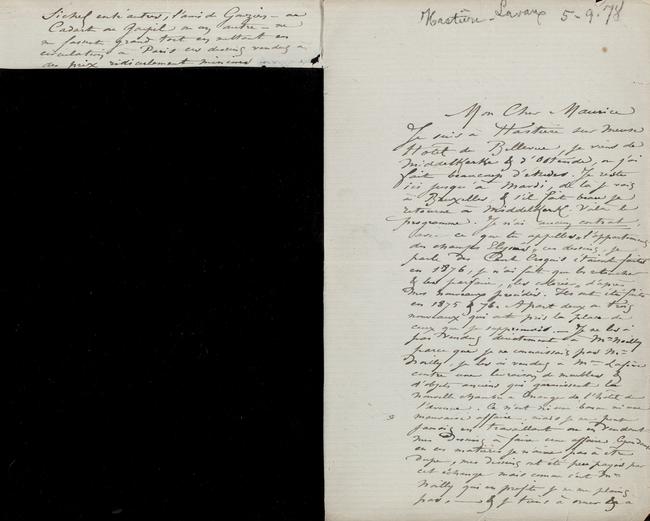 Sichel entr'autres, l'ami de Gouzien – ou
Cadart ou Goupil ou un autre – ne
me fassent grand tort en mettant en
circulation à Paris ces dessins vendus à
des prix ridiculement minimes
Hastière-Lavaux 5-9.78
Mon Cher Maurice
Je suis à Hastière sur meuse
Hotel de Bellevue, je viens de
Middelkerke & d'Ostende, où j'ai
fait beaucoup d'études. Je reste
ici jusqu'à Mardi, de là je vais
à Bruxelles & s'il fait beau je
retourne à Middelkerk. Voilà le
programme. Je n'ai aucun contrat
avec ce que tu appelles, l'appartement
des champs Elysées, ces dessins, je
parle des Cent Croquis étaient faits
en 1876, je n'ai fait que les retoucher
& les parfaire, les colorier, d'après
mes nouveaux procédés. Ils ont été faits
en 1875 & 76. A part deux ou trois
nouveaux qui ont pris la place de
ceux que je supprimais. – Je ne les ai
pas vendus directement à Mr Noilly
parce que je ne connaissais pas Mr
Noilly, je les ai vendus à Mr
contre une livraison de meubles &
d'objets anciens qui garnissent la
nouvelle chambre de l'hotel de
l'avenue. Ce n'est ni une bonne ni une
mauvaise affaire, mais je ne peux
jamais en travaillant ou en vendant
mes dessins à faire une affaire
en ces matières je n'aime pas à être
dupe, mes dessins ont été peu payés par
cet échange mais comme c'est Mr
Noilly qui en profite je ne me plains
pas, – & je tiens à orner